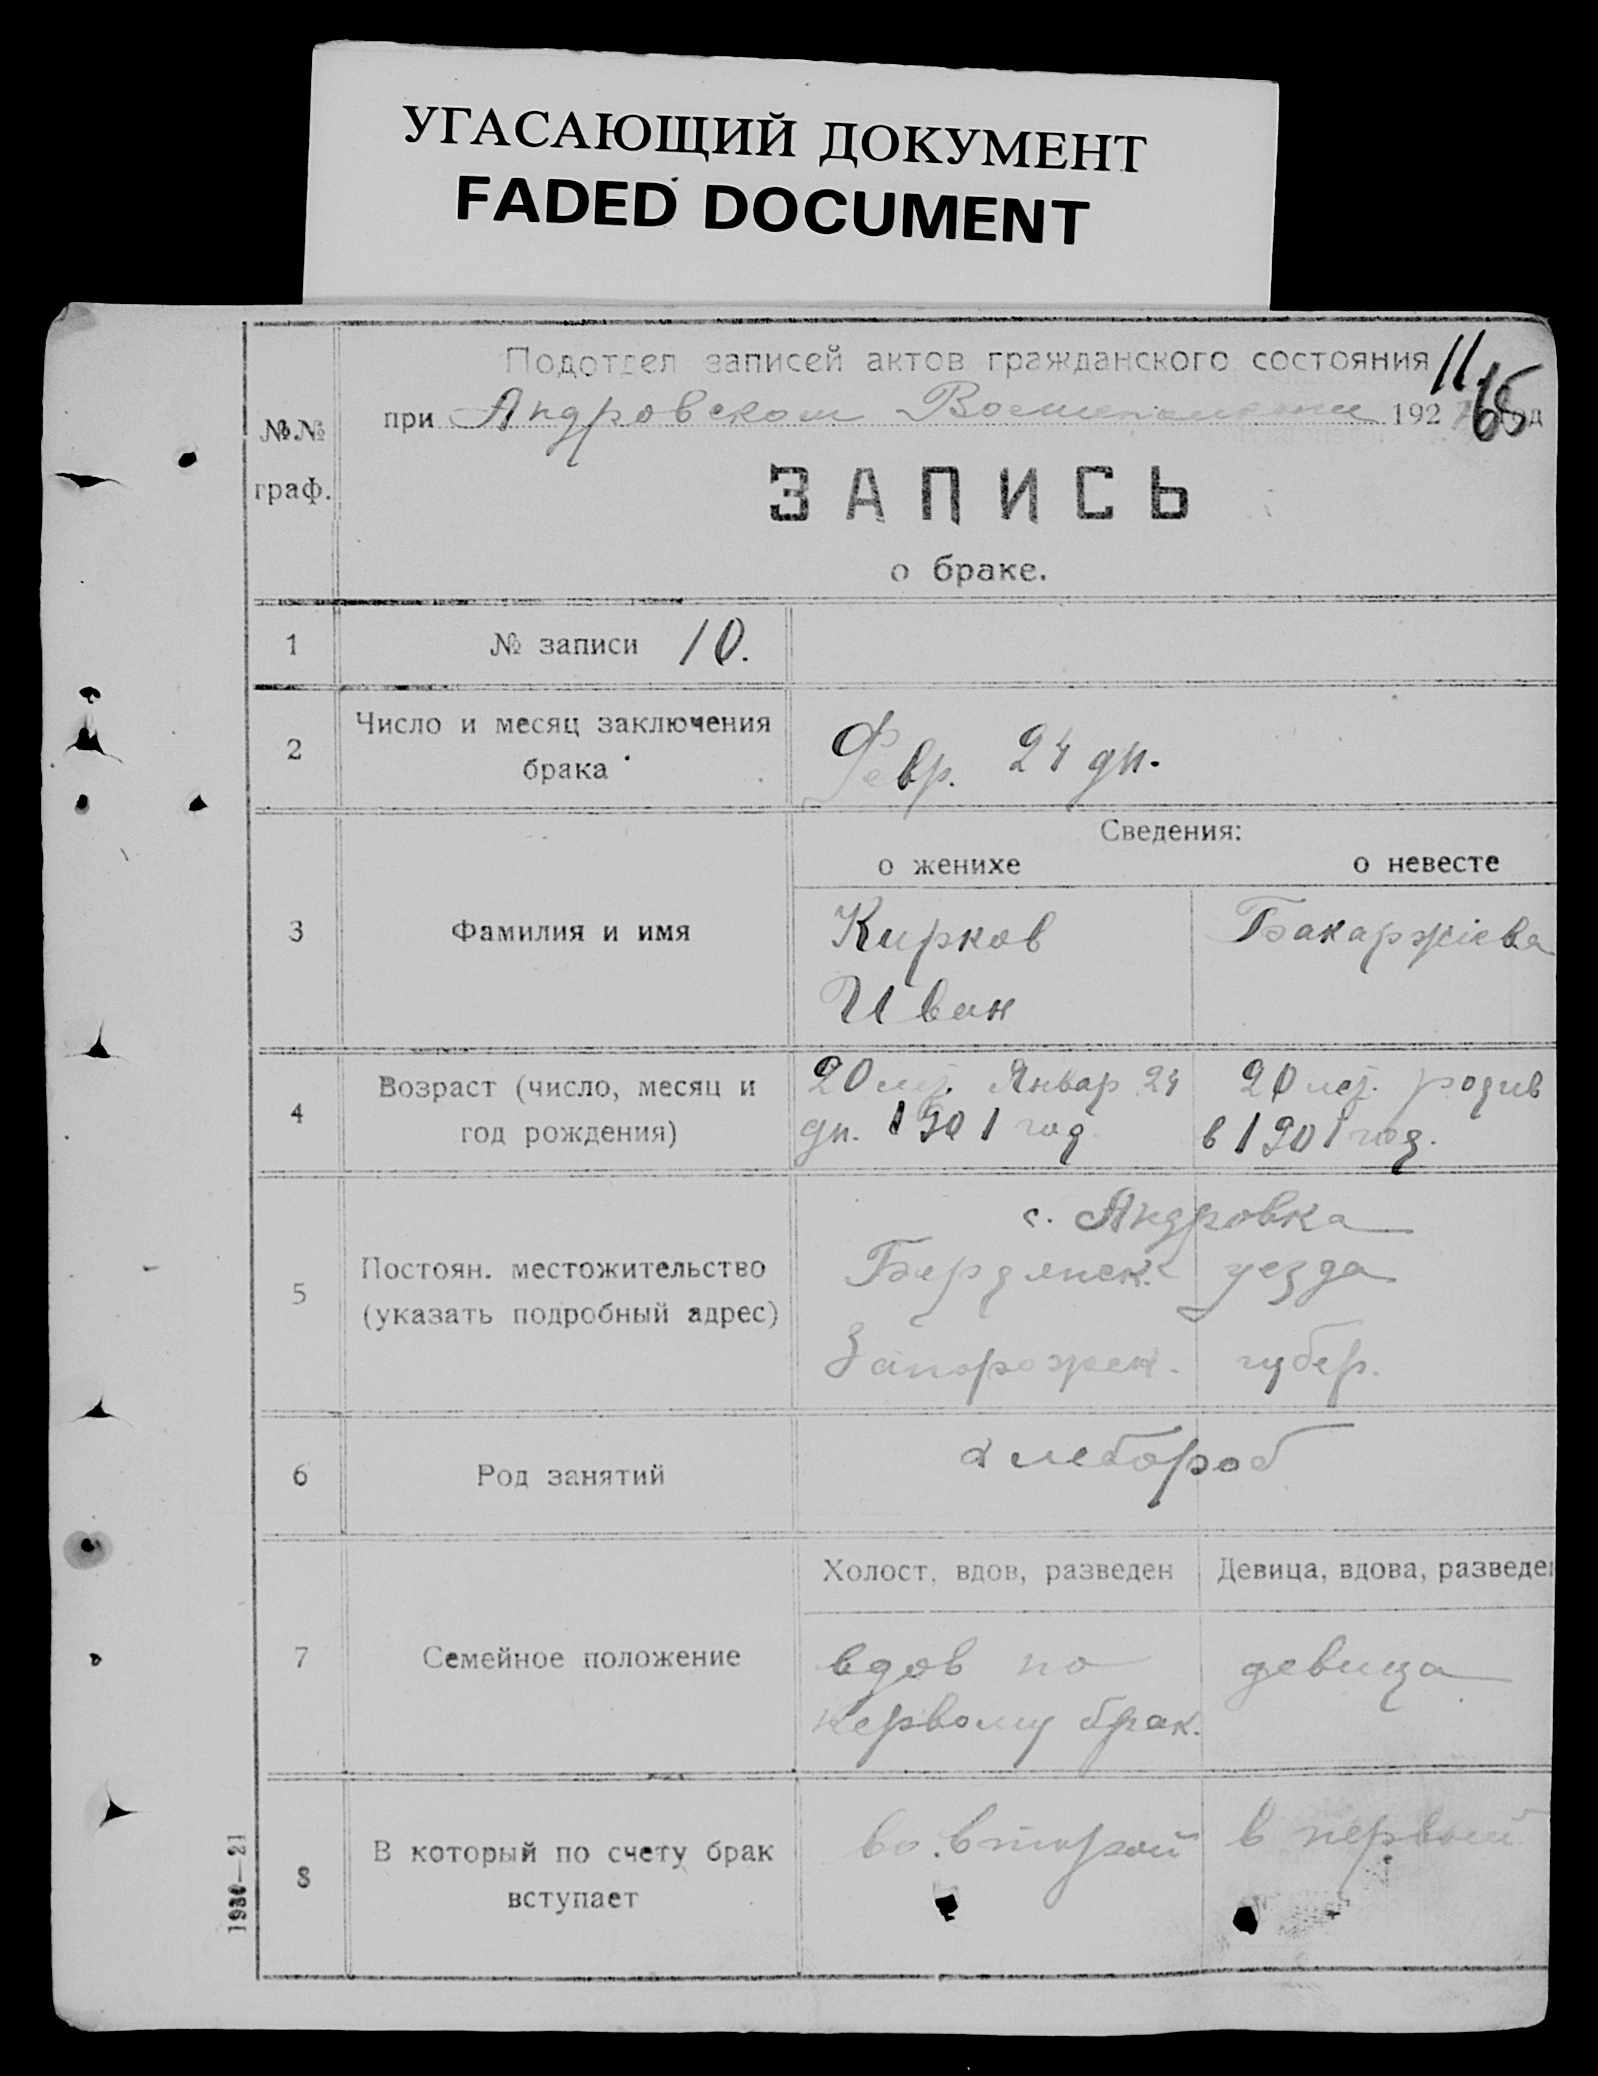 УГАСАЮЩИЙ ДОКУМЕНТ
FADED DOCUMENT
Подотдел записей актов гражданского состояния 11
при Андровском 192 год 65
№№ граф.
ЗАПИСЬ
о браке.
1 № записи 10.
2 Число и месяц заключения брака Февр. 24 дн.
Сведения:
о женихе о невесте
3 Фамилия и имя
Кирков Бакаржіева
Иван
4 Возраст (число, месяц и год рождения)
20 лет. Январ 24 20 лет. родив
дн. 1901 год в 1901 год.
5 Постоян. местожительство (указать подробный адрес)
с. Андровка
Бердянск. уезда
Запорожск. губер.
6 Род занятий хлебороб
Холост, вдов, разведен Девица, вдова, разведен
7 Семейное положение
вдов по девица
первому брак.
8 В который по счету брак вступает
во второй в первый